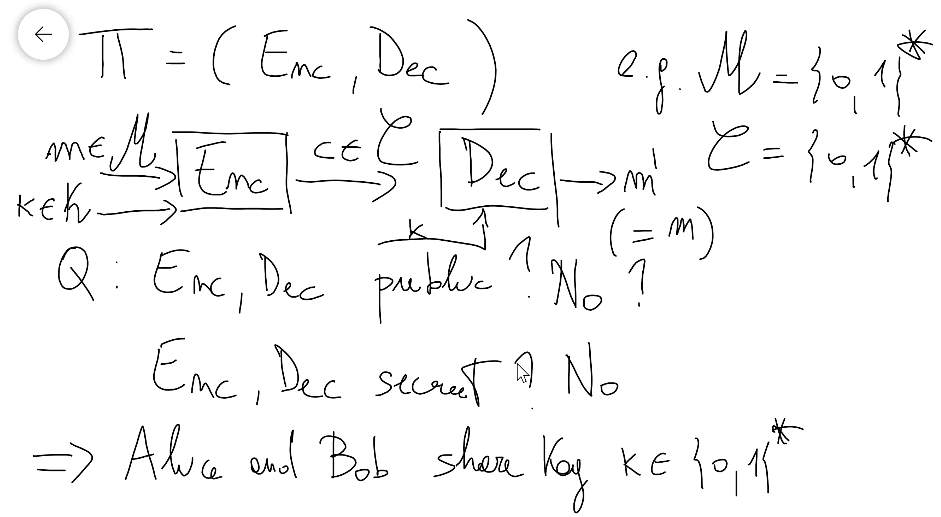 Π = (Enc, Dec) e.g. M = {0,1}*
m ∈ M Enc c ∈ C Dec m' C = {0,1}*
k ∈ K k (= m)
Q: Enc, Dec public? No?
Enc, Dec secret? No
⇒ Alice and Bob share key k ∈ {0,1}*